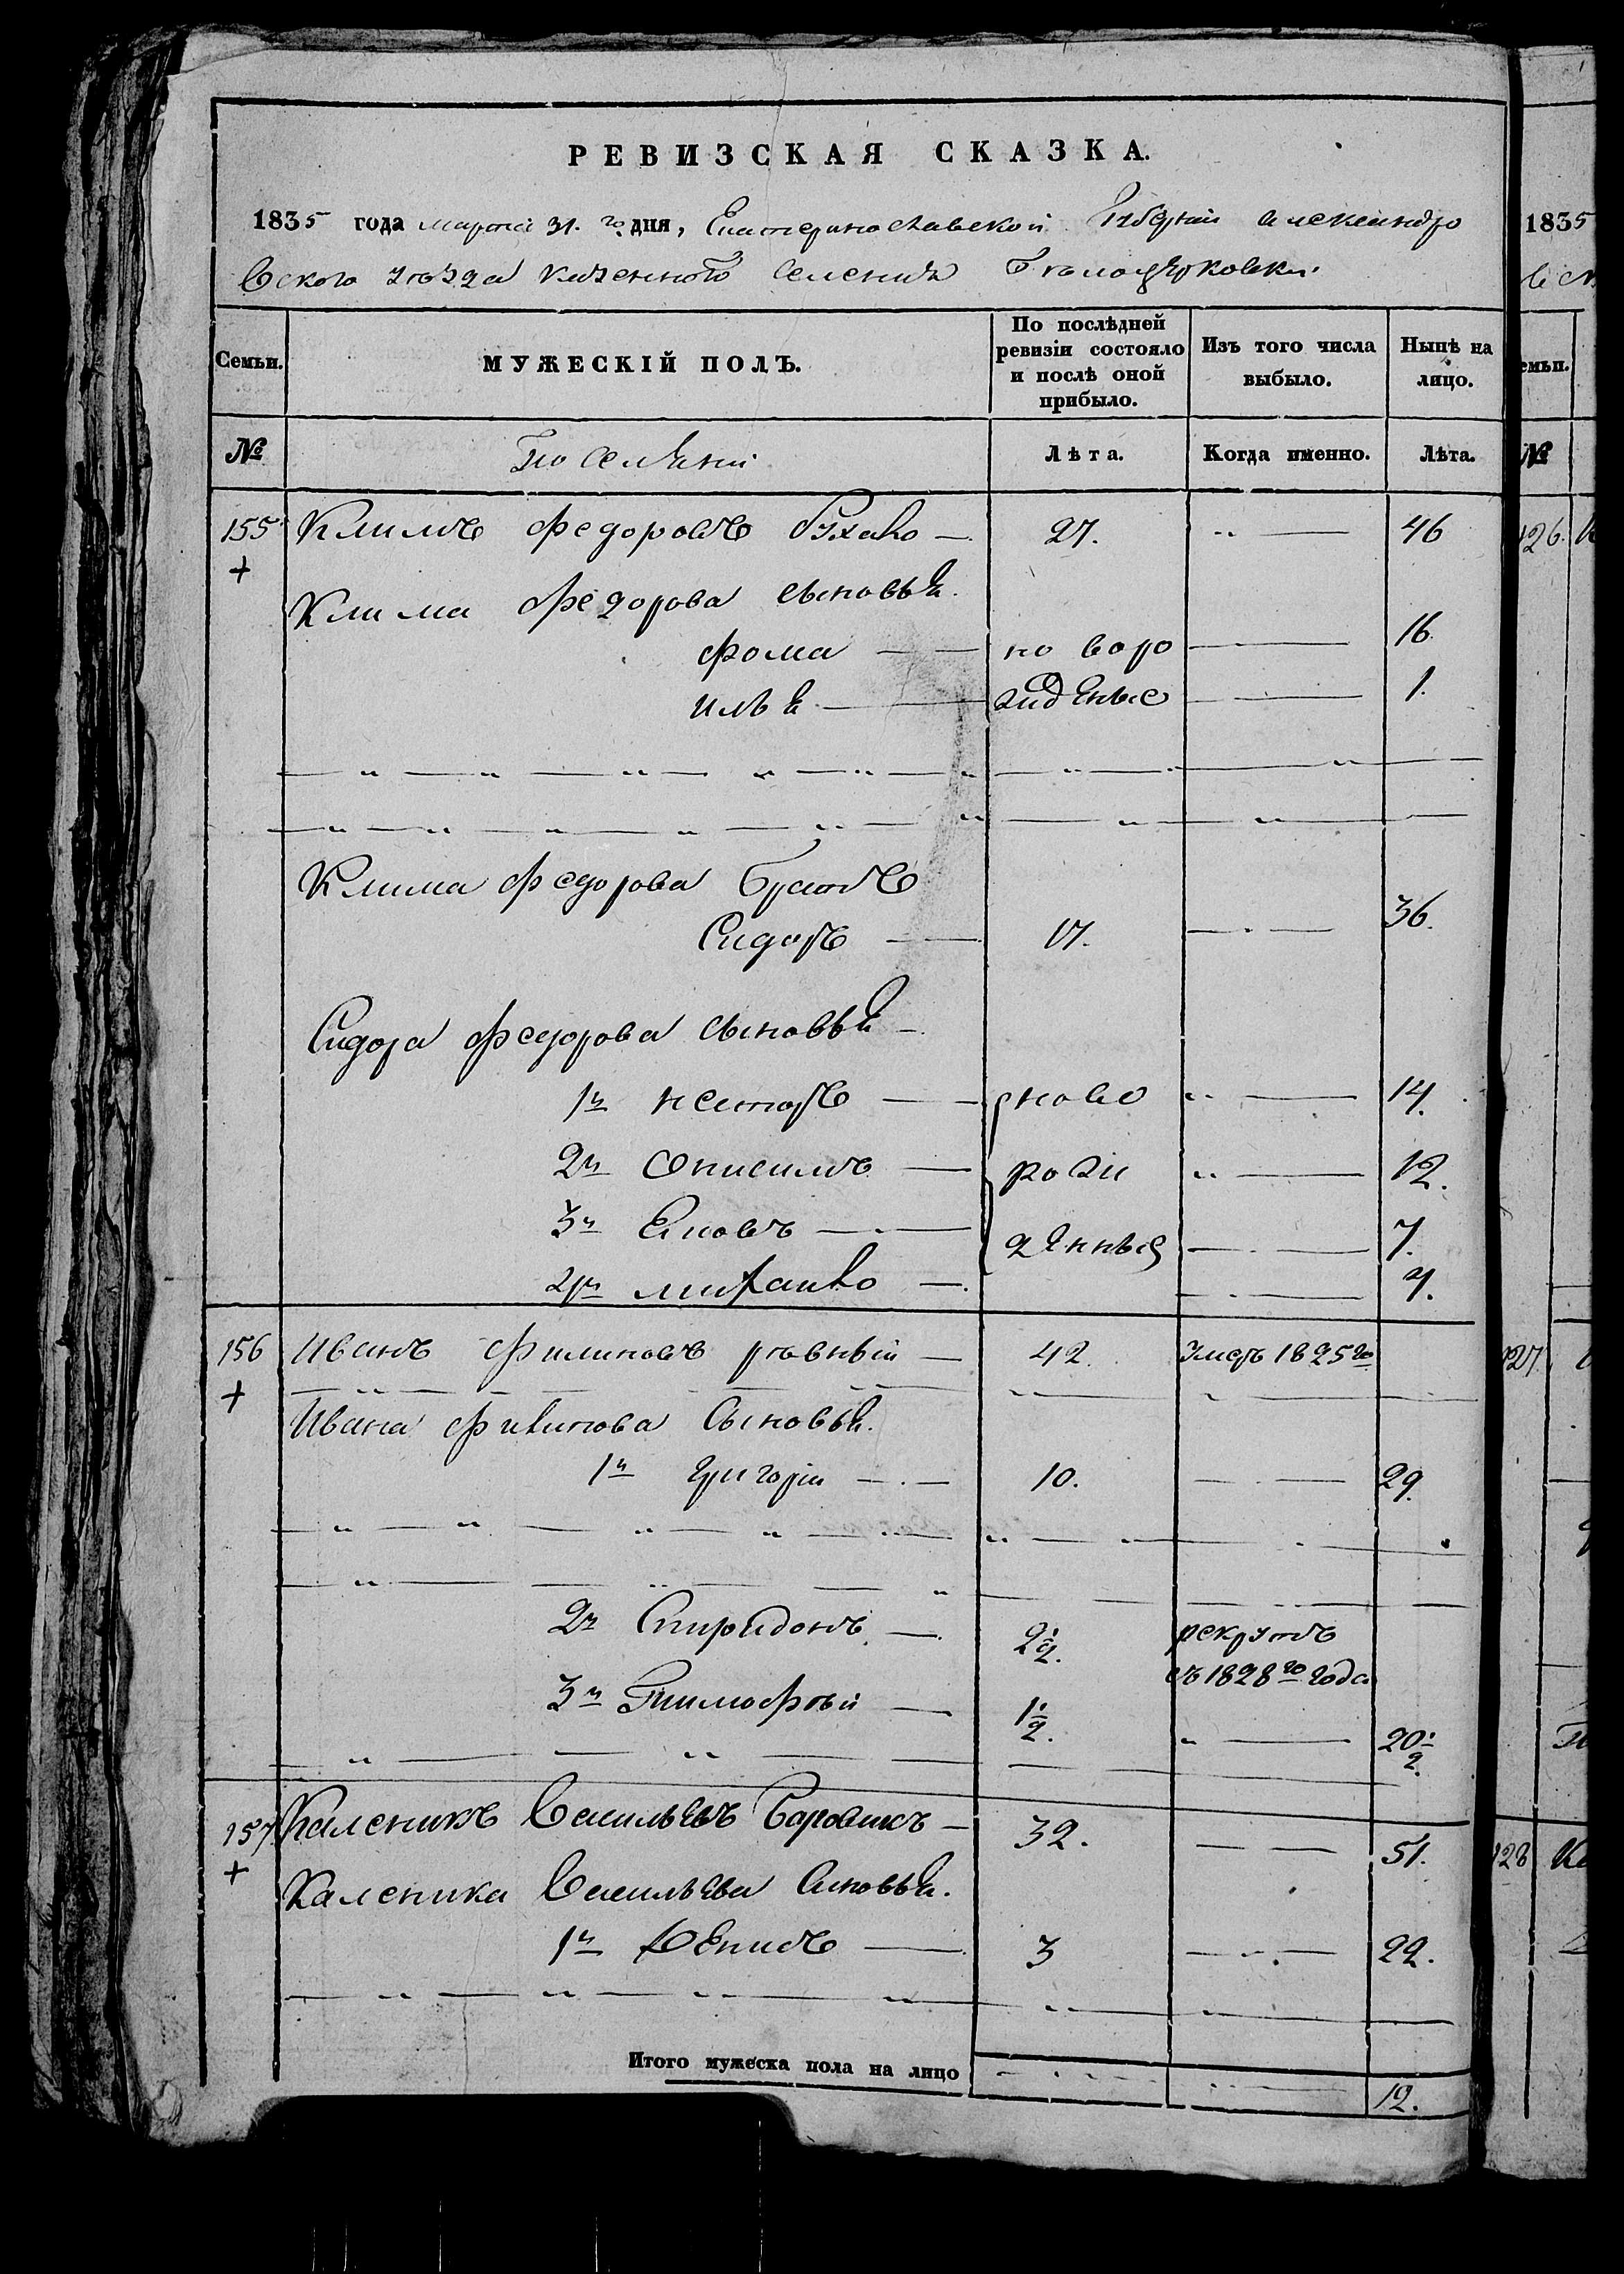 РЕВИЗСКАЯ СКАЗКА.
1835 года марта 31. го дня, Екатеринославской Губернии Александро
вского уѣзда казенного селения Бѣлоцерковки.
Семьи. МУЖЕСКІЙ ПОЛЪ. По послѣдней ревизіи состояло и послѣ оной прибыло. Изъ того числа выбыло. Нынѣ на лицо.
№ Поселяни Лѣта. Когда именно. Лѣта.
155 Климъ Федоровъ 27. 46
+
Клима Федорова сыновья.
Фома новоро 16
Илья жденые 1.
Клима Федорова братъ
Сидоръ 17. 36.
Сидора Федорова сыновья
1й Несторъ ново 14.
2й Онисимъ рожи 12.
3й Яковъ дянныя 7.
4й Михаило 4.
156 Иванъ Филиповъ умеръ 1825го
42.
+
Ивана Филипова Сыновья.
1й Григорій 10. 29.
2й Спиридонъ 2 1/2. рекрутъ
съ 1828го года
3й Тимофѣй 1 1/2. 20 1/2.
157 Каленикъ Васильевъ Боровикъ 32. 51.
+
Каленика Васильева Сыновья.
1й Денисъ 3 22.
Итого мужеска пола на лицо 12.
1835
№
126.
127.
128